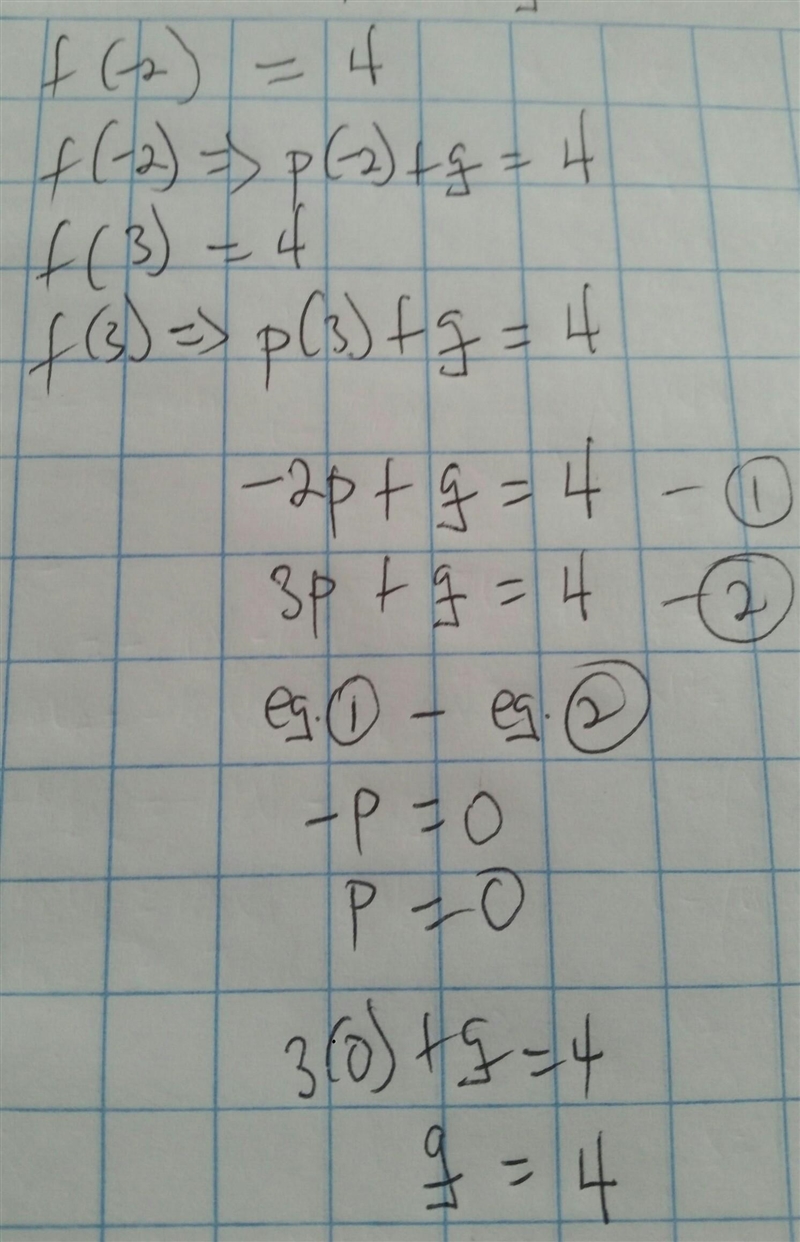 f(-2) = 4
f(-2) => p(-2) + q = 4
f(3) = 4
f(3) => p(3) + q = 4
-2p + q = 4 - ①
3p + q = 4 - ②
eq. ① - eq. ②
-p = 0
p = 0
3(0) + q = 4
q = 4